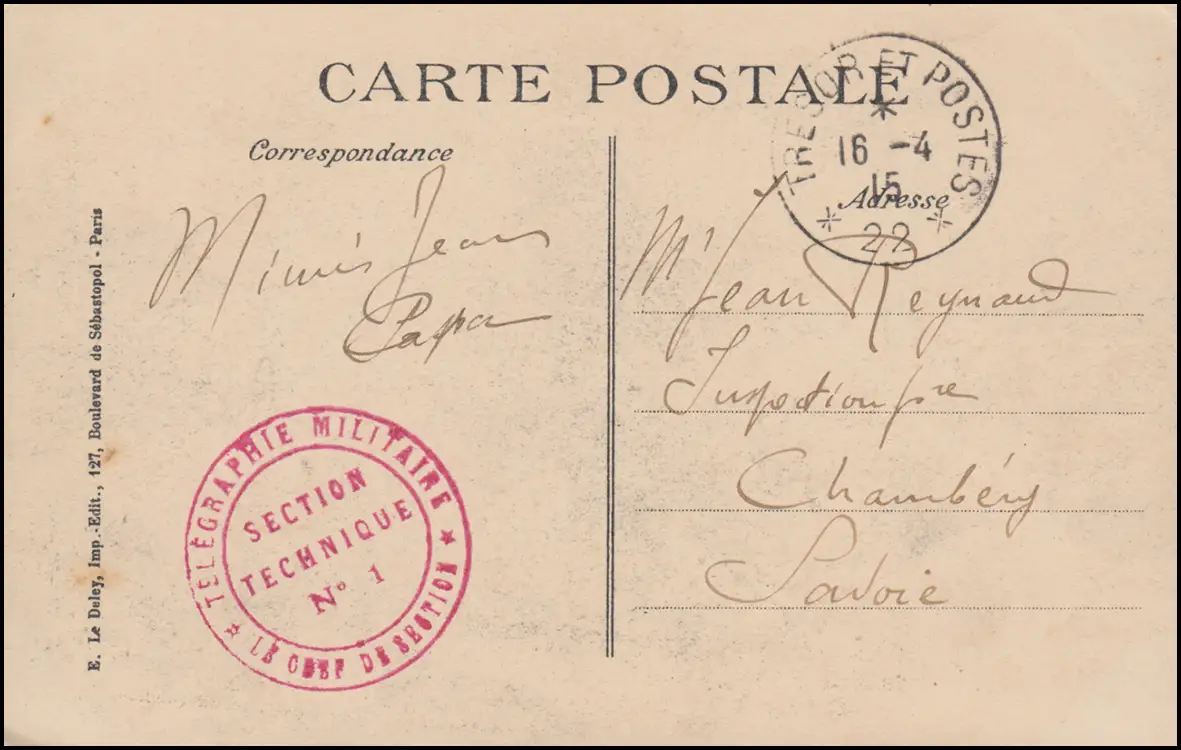 CARTE POSTALE
TRESOR ET POSTES
16 -4
15
22
Correspondance
Adresse
Jean
Papa
Mr Jean Reynaud
Inspection pre
Chambéry
Savoie
TELÉGRAPHIE MILITAIRE
SECTION
TECHNIQUE
No 1
LE CHEF DE SECTION
E. Le Deley, Imp.-Edit., 127, Boulevard de Sébastopol - Paris